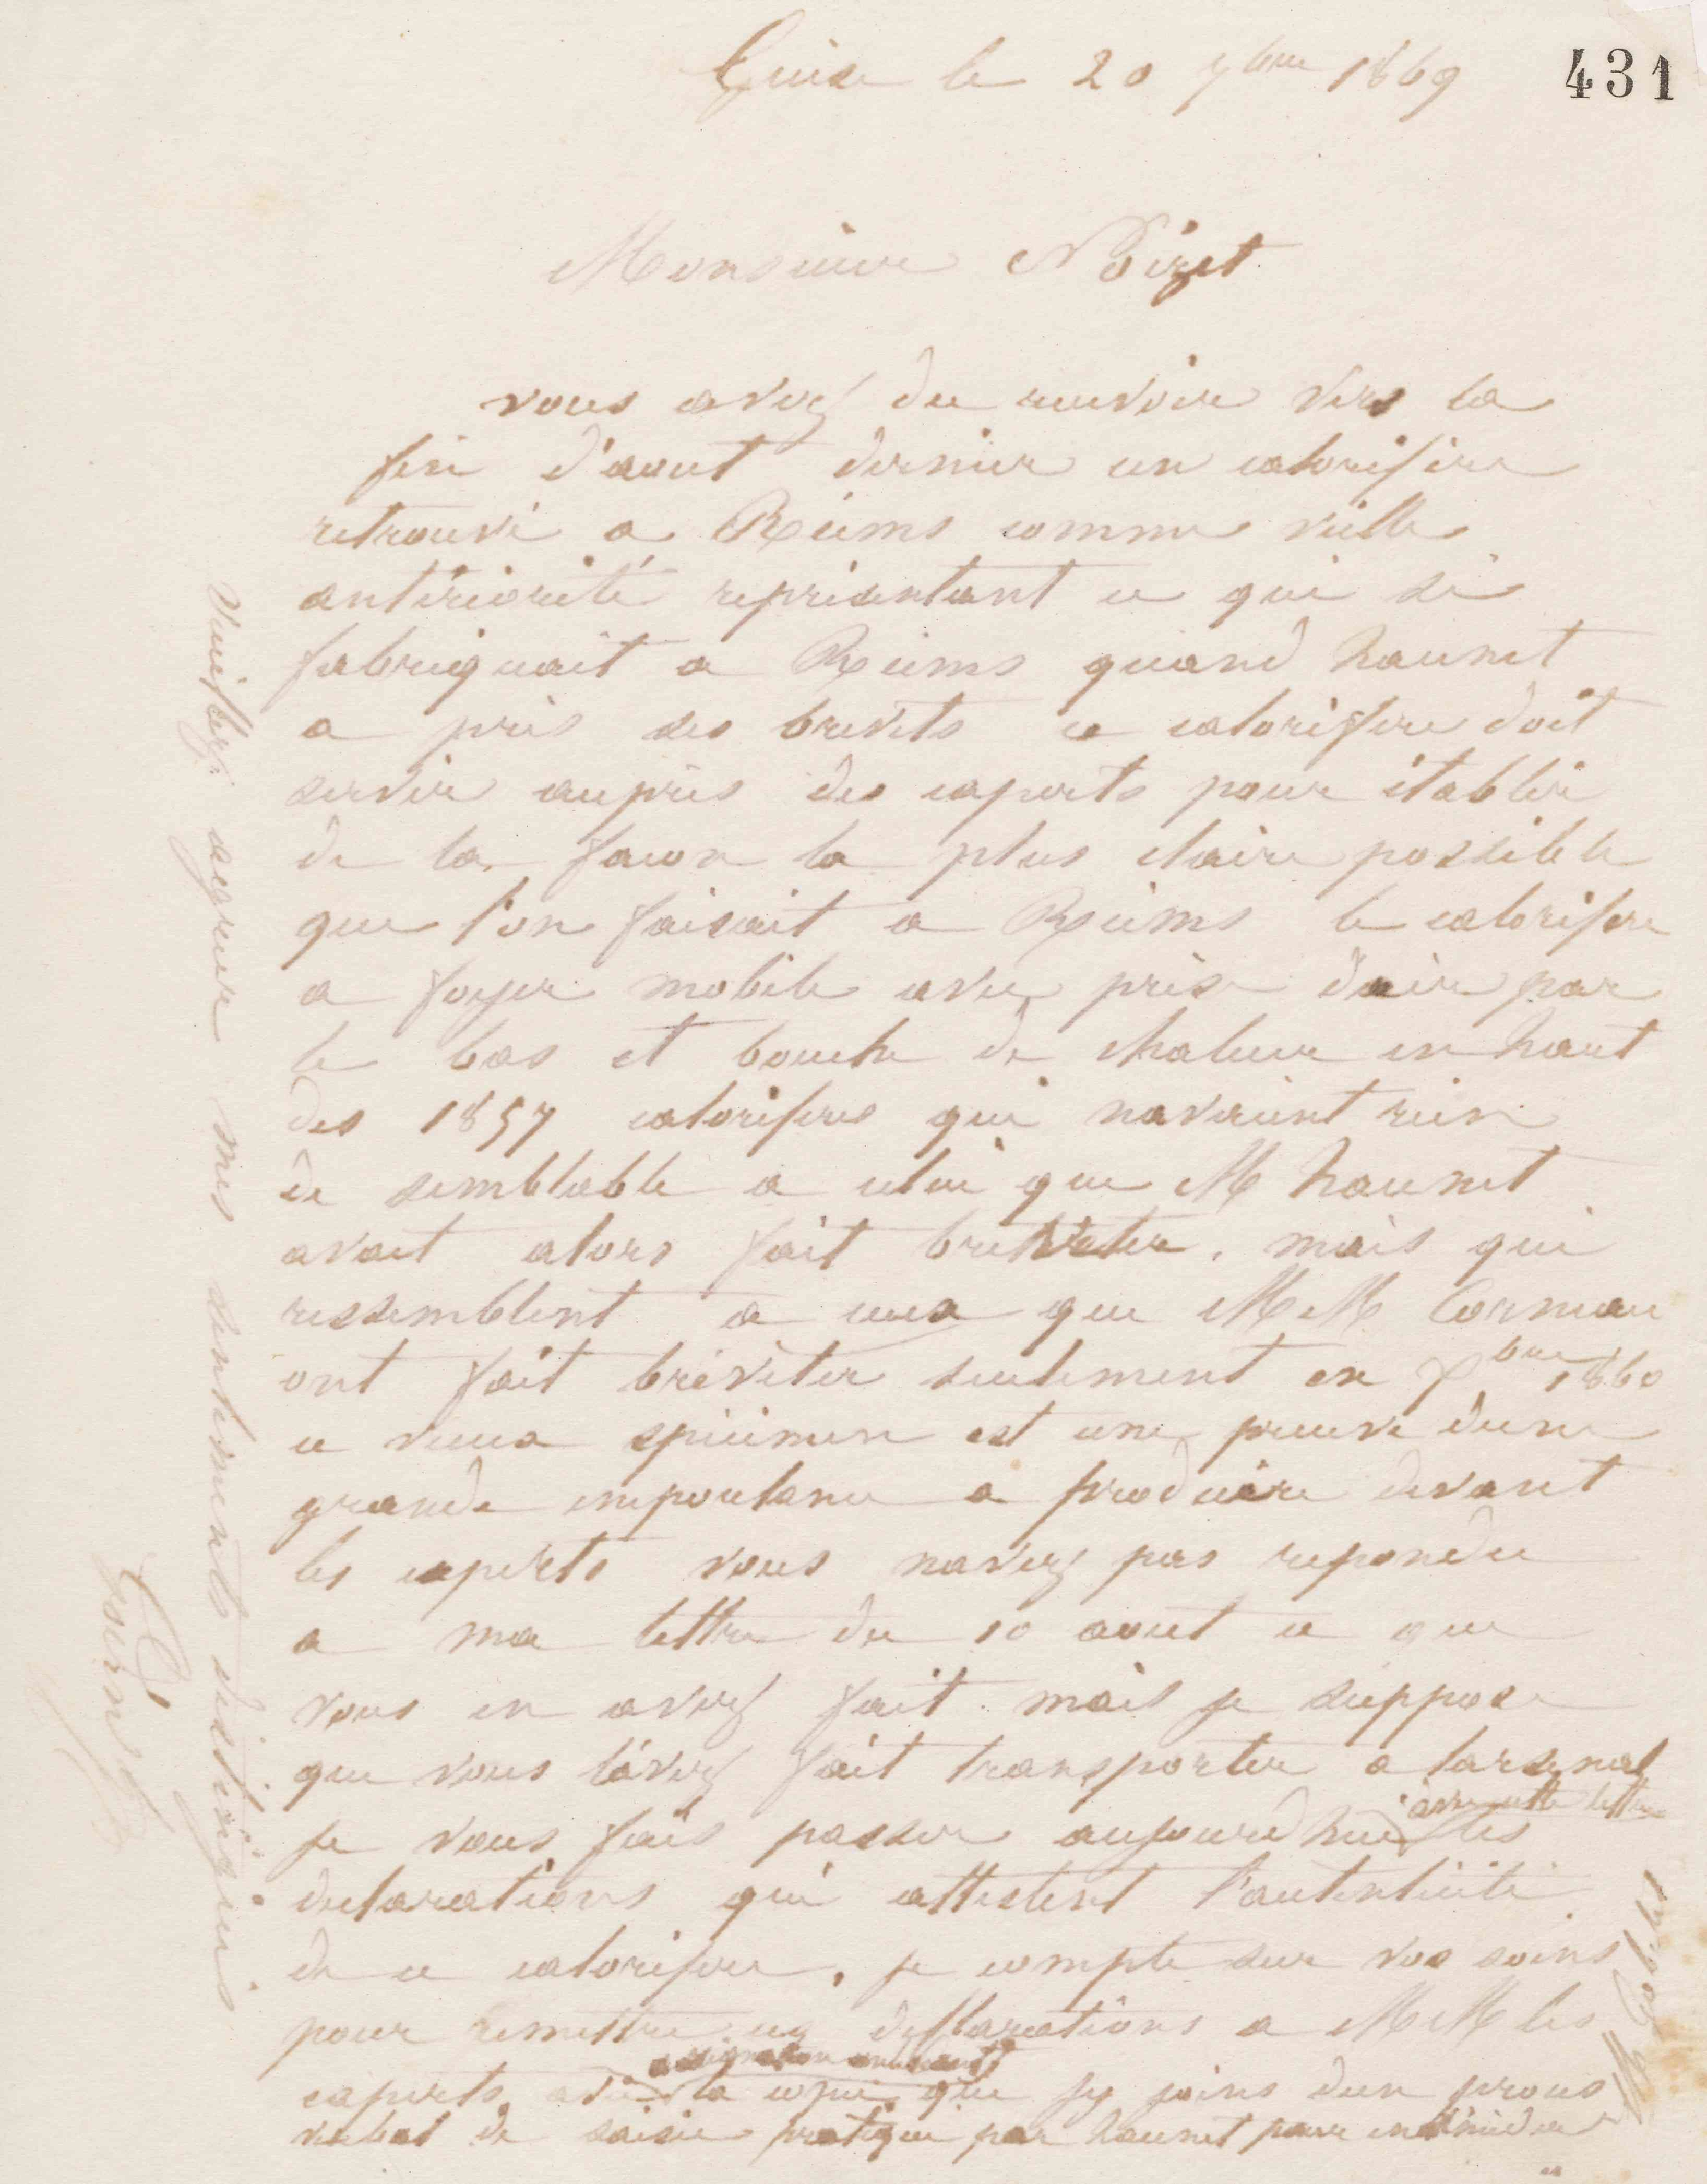 Guise le 20 7bre 1869
431
Monsieur Noizet
vous avez du recevoir vers la
fin d'aout dernier un calorifère
retrouvé a Reims comme vielle
antériorité représentant ce qui se
fabriquait a Reims quand haunet
a pris ses brevets ce calorifere doit
servir auprès des experts pour établir
de la facon la plus claire possible
que l'on faisait a Reims le calorifere
a foyer mobile avec prise dair par
le bas et bouche de chaleur en haut
des 1857 caloriferes qui navaient rien
de semblable a celui que M haunet
avait alors fait breveter, mais qui
ressemblent a ceux que MM Corneau
ont fait bréveter seulement en Xbre 1860
ce vieux spécimen est une preuve dune
grande importance a produire devant
les experts vous navez pas repondu
a ma lettre du 10 aout ce que
vous en avez fait. mais je suppose
que vous l'avez fait transporter a larsenal
je vous fais passer aujourdhui avec cette lettre les
declarations qui attestent l'autenticité
de ce calorifere, je compte sur vos soins
pour remettre ces declarations a MM les
experts, avec la copie que jy joins dun proces
verbal de saisie pratiqué par haunet pour intimider
veuillez agréer mes sentiments distingués
Godin